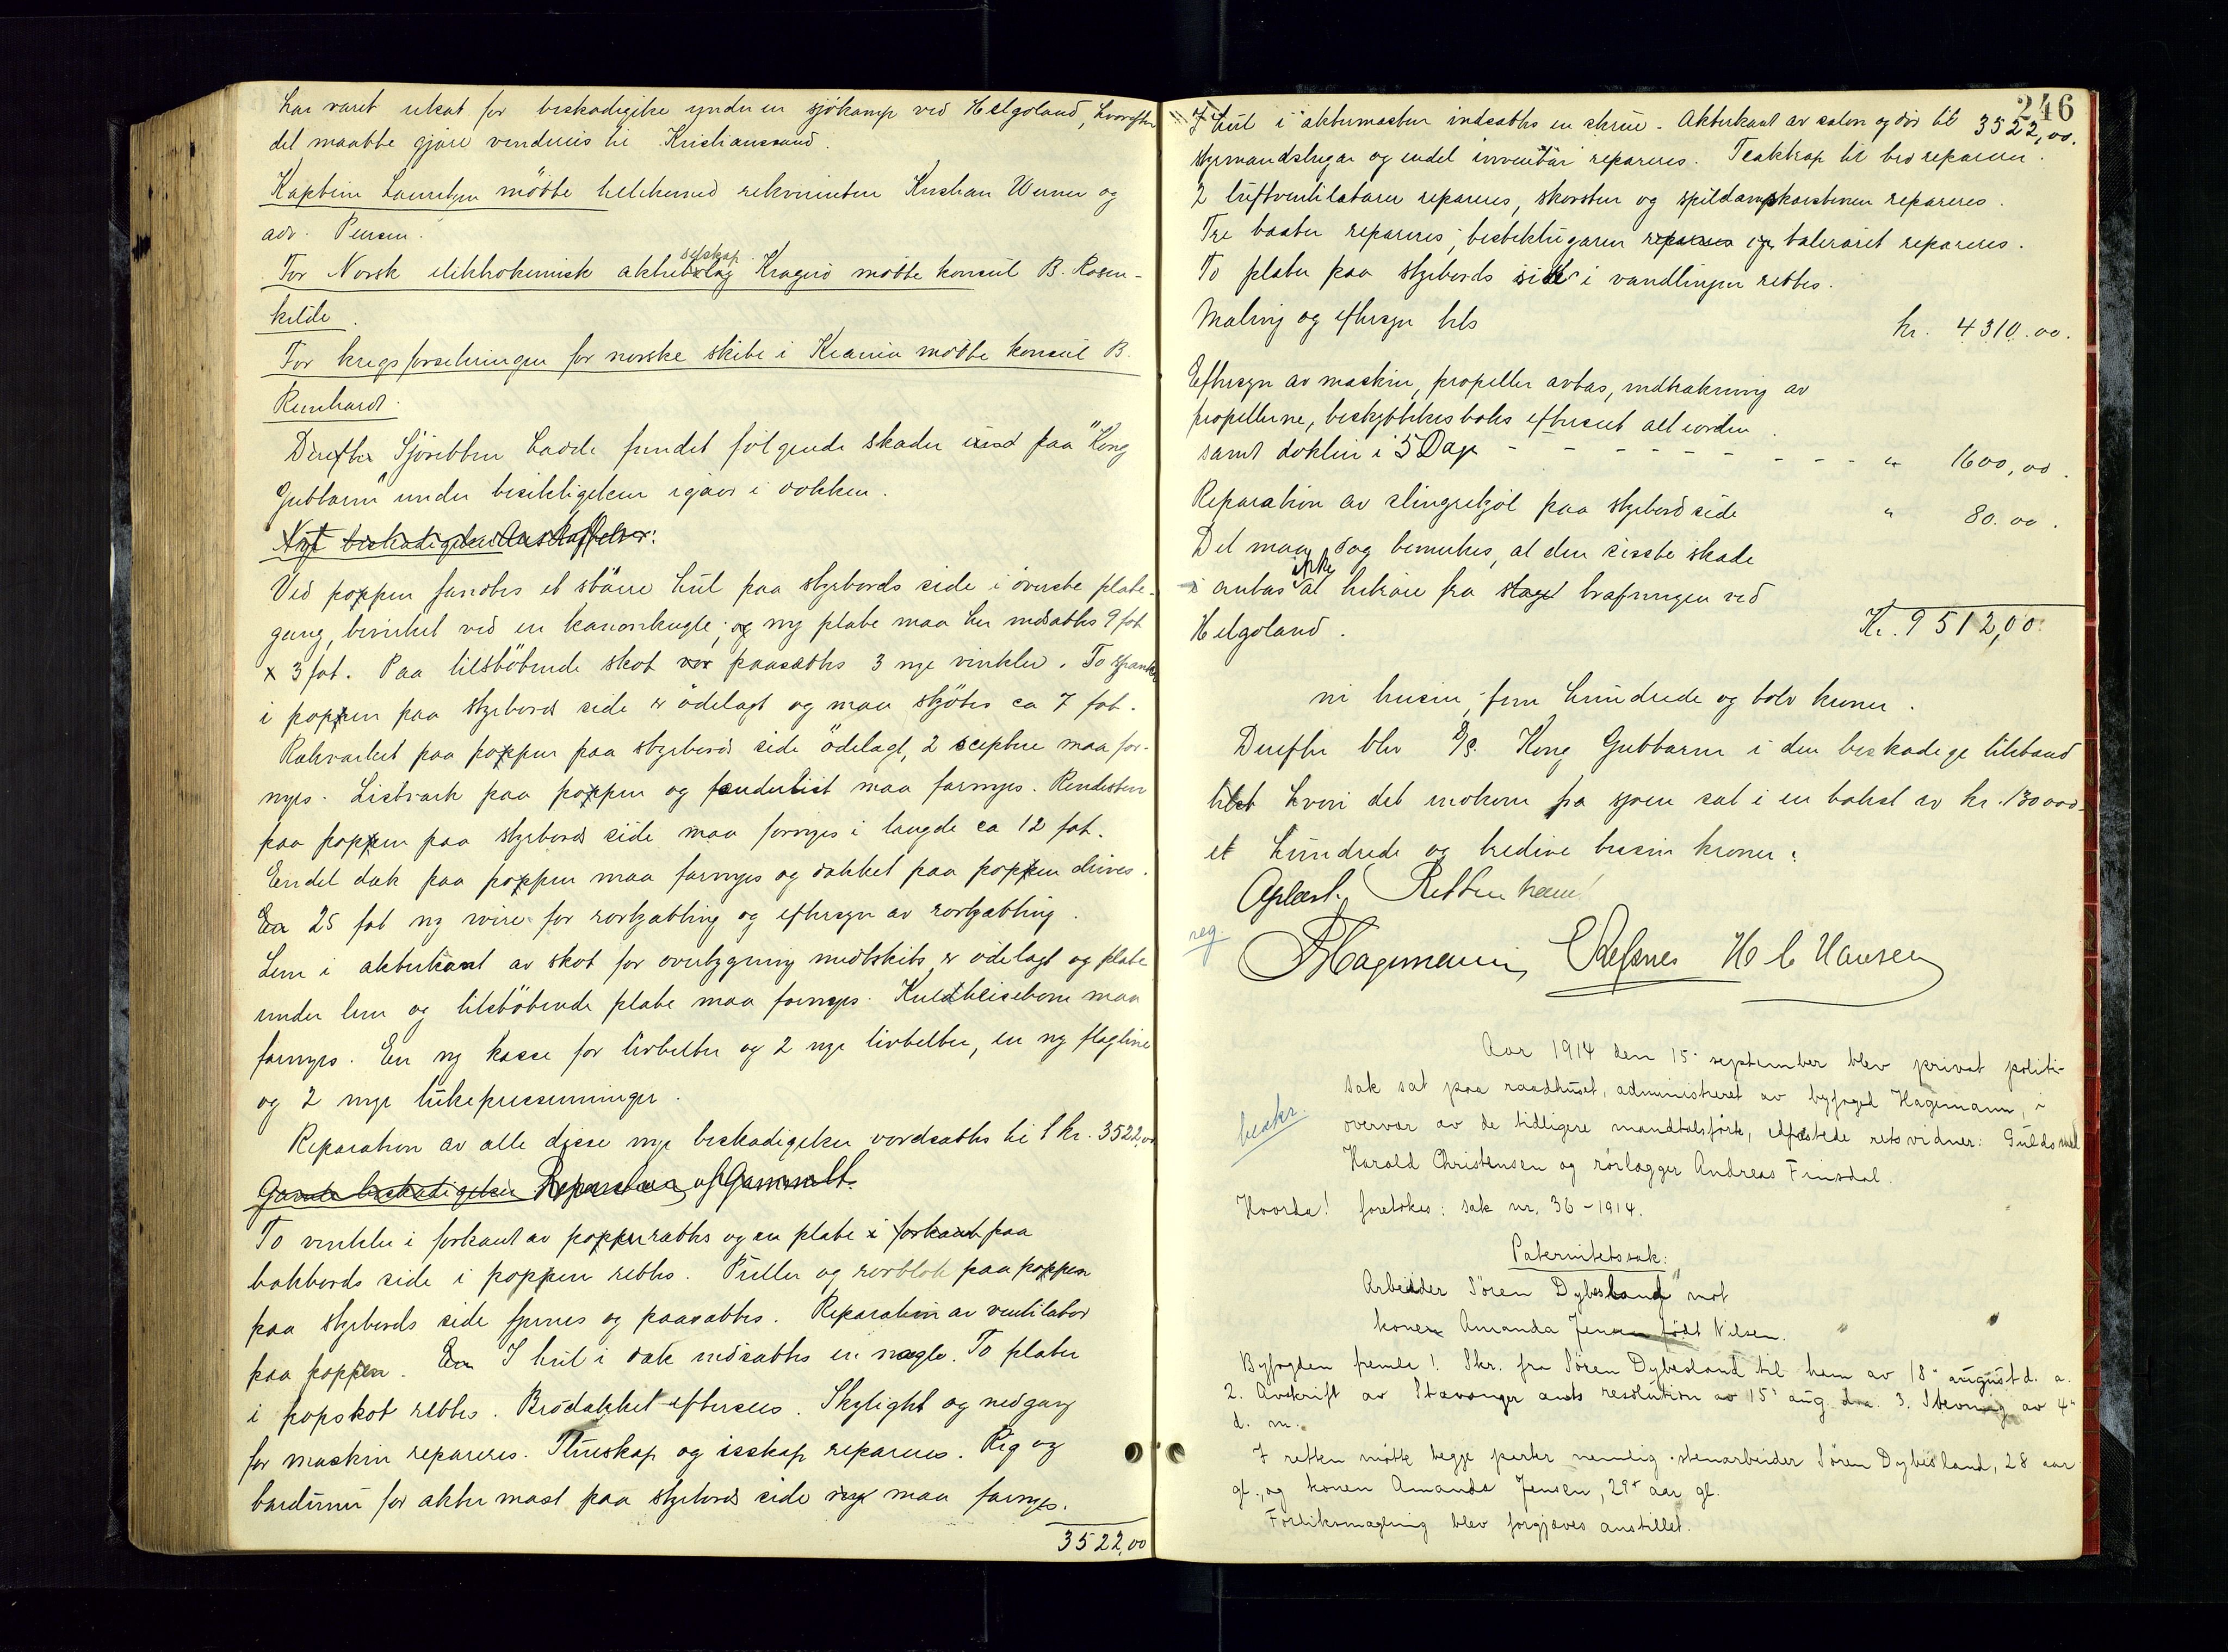 har været utsat for beskadigelse under en sjökamp ved Helgoland, hvorefter
det maatte gjøre vendereis til Kristianssand.
Kaptein Lauritzen mötte tillikemed rekvirenten Kristian Werner og
adv. Persen.
For Norsk elektrokemisk aktieselskap Kragerö mötte konsul B. Rosen-
kilde.
For krigsforsikringen for norske skibe i Kr.ania mötte konsul B.
Reinhardt.
Derefter Sjöretten havde fundet fölgende skader paa "Kong
Guttorm" under besiktigelsen igaar i dokken.
Nye beskadigelser Anskaffelser:
Ved poppen fandtes et större hul paa styrbords side i överste plate-
gang, bevirket ved en kanonkugle; og ny plate maa her indsættes 9 fot
x 3 fot. Paa tilstötende skot paasættes 3 nye vinkler. To spanter
i poppen paa styrbords side er ödelagt og maa skjötes ca 7 fot.
Rækverket paa poppen paa styrbords side ödelagt, 2 sceptre maa for-
nyes. Listverk paa poppen og fenderlist maa fornyes. Rendesten
paa poppen paa styrbords side maa fornyes i længde ca 12 fot.
Endel dæk paa poppen maa fornyes og dækket paa poppen drives.
Ca 25 fot ny wire for rorkjætting og eftersyn av rorkjætting.
Lem i akterkant av skot for overbygning midtskibs er ödelagt og plate
under lem og tilstötende plate maa fornyes. Kulheisebom maa
fornyes. En ny kasse for livbelter og 2 nye livbelter, en ny flagline
og 2 nye lukepresenninger.
Reparation av alle disse nye beskadigelser værdsættes til kr. 3522,00
Gamle beskadigelser Reparation af Gammelt.
To vinkler i forkant av poppen rettes og en plate i forkant paa
bakbords side i poppen rettes. Puller og rorblok paa poppen
paa styrbords side fjernes og paasættes. Reparation av ventilator
paa poppen. En I hul i dæk indsættes en nagle. To plater
i popskot rettes. Brodækket eftersees. Skylight og nedgang
for maskin repareres. Flueskap og isskap repareres. Rig og
barduner for akter mast paa styrbords side maa fornyes.
3522,00
246
I hul i aktermasten indsættes en skrue. Akterkant av salon og dör til 3522,00.
styrmandslugar og endel inventar repareres. Teaktrap til bro repareres.
2 luftventilatorer repareres, skorsten og spildampskorstenen repareres.
Tre baater repareres; bestiklugaren repareres og talerøret repareres.
To plater paa styrbords side i vandlinjen rettes.
Maling og eftersyn hels kr. 4310.00.
Eftersyn av maskin, propeller avtas, indtrækning av
propellerne, beskyttelsesboks efterseet alt iorden
samt dokleie i 5 Dage - - - - - - - - - " 1600,00.
Reparation av slingrekjöl paa styrbord side " 80.00.
Det maa dog bemerkes, at den sisste skade
antas ikke at hidröre fra træfningen ved
Helgoland. Kr. 9512,00
ni tusen, fem hundrede og tolv kroner.
Derefter blev D/S. Kong Guttorm i den beskadige tilstand
hvori det indkom fra sjøen sat i en takst av kr. 130 000
et hundrede og tredive tusin kroner.
Oplæst. Retten hævet
reg.
Hagemann E Refsnes H C Hansen
Aar 1914 den 15. september blev privat politi-
sak sat paa raadhuset, administreret av byfoged Hagemann, i
overvær av de tidligere mandtalsförte, edfæstede retsvidner: Guldsmed
Harald Christensen og rørlægger Andreas Finsdal.
beskr.
Hvorda! foretokes: sak nr. 36-1914.
Paternitetssak:
Arbeider Sören Dybesland mot
konen Amanda Jensen født Nilsen.
Byfogden fremla 1. Skr. fra Sören Dybesland til ham av 18. august d. a.
2. Avskrift av Stavanger amts resolution av 15. aug. d.a. 3. Stevning av 4.
d. m.
I retten mötte begge parter nemlig stenarbeider Sören Dybesland, 28 aar
gl., og konen Amanda Jensen, 29 aar gl.
Forliksmægling blev forgjæves anstillet.